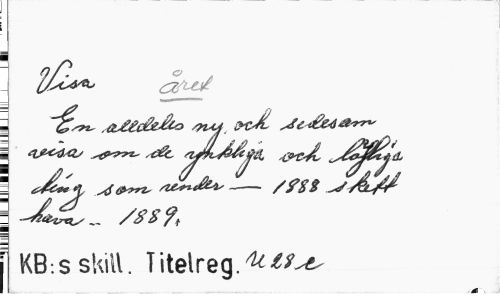 Visa året
En alldeles ny och sedesam
visa om de ynkliga och löjliga
ting som render — 1888 skett
hava .. 1889.
KB:s skill. Titelreg. U 28 c